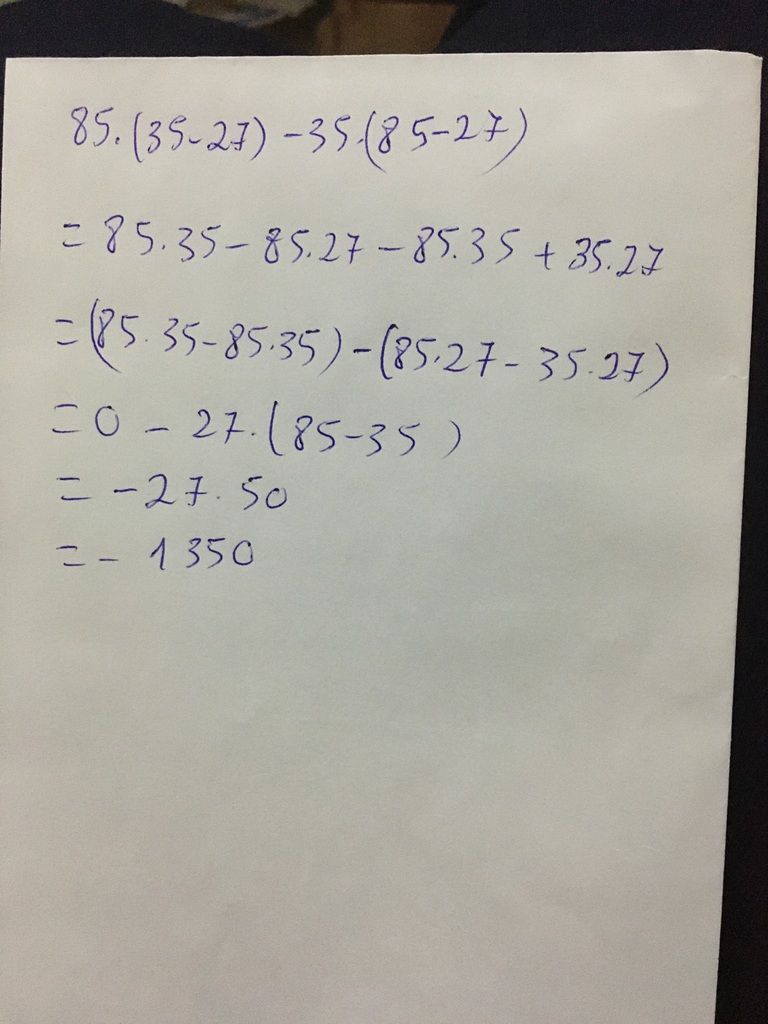 85.(35-27) -35.(85-27)
= 85.35- 85.27 - 85.35 + 35.27
= (85.35-85.35) - (85.27- 35.27)
= 0 - 27.(85-35)
= -27.50
= - 1350